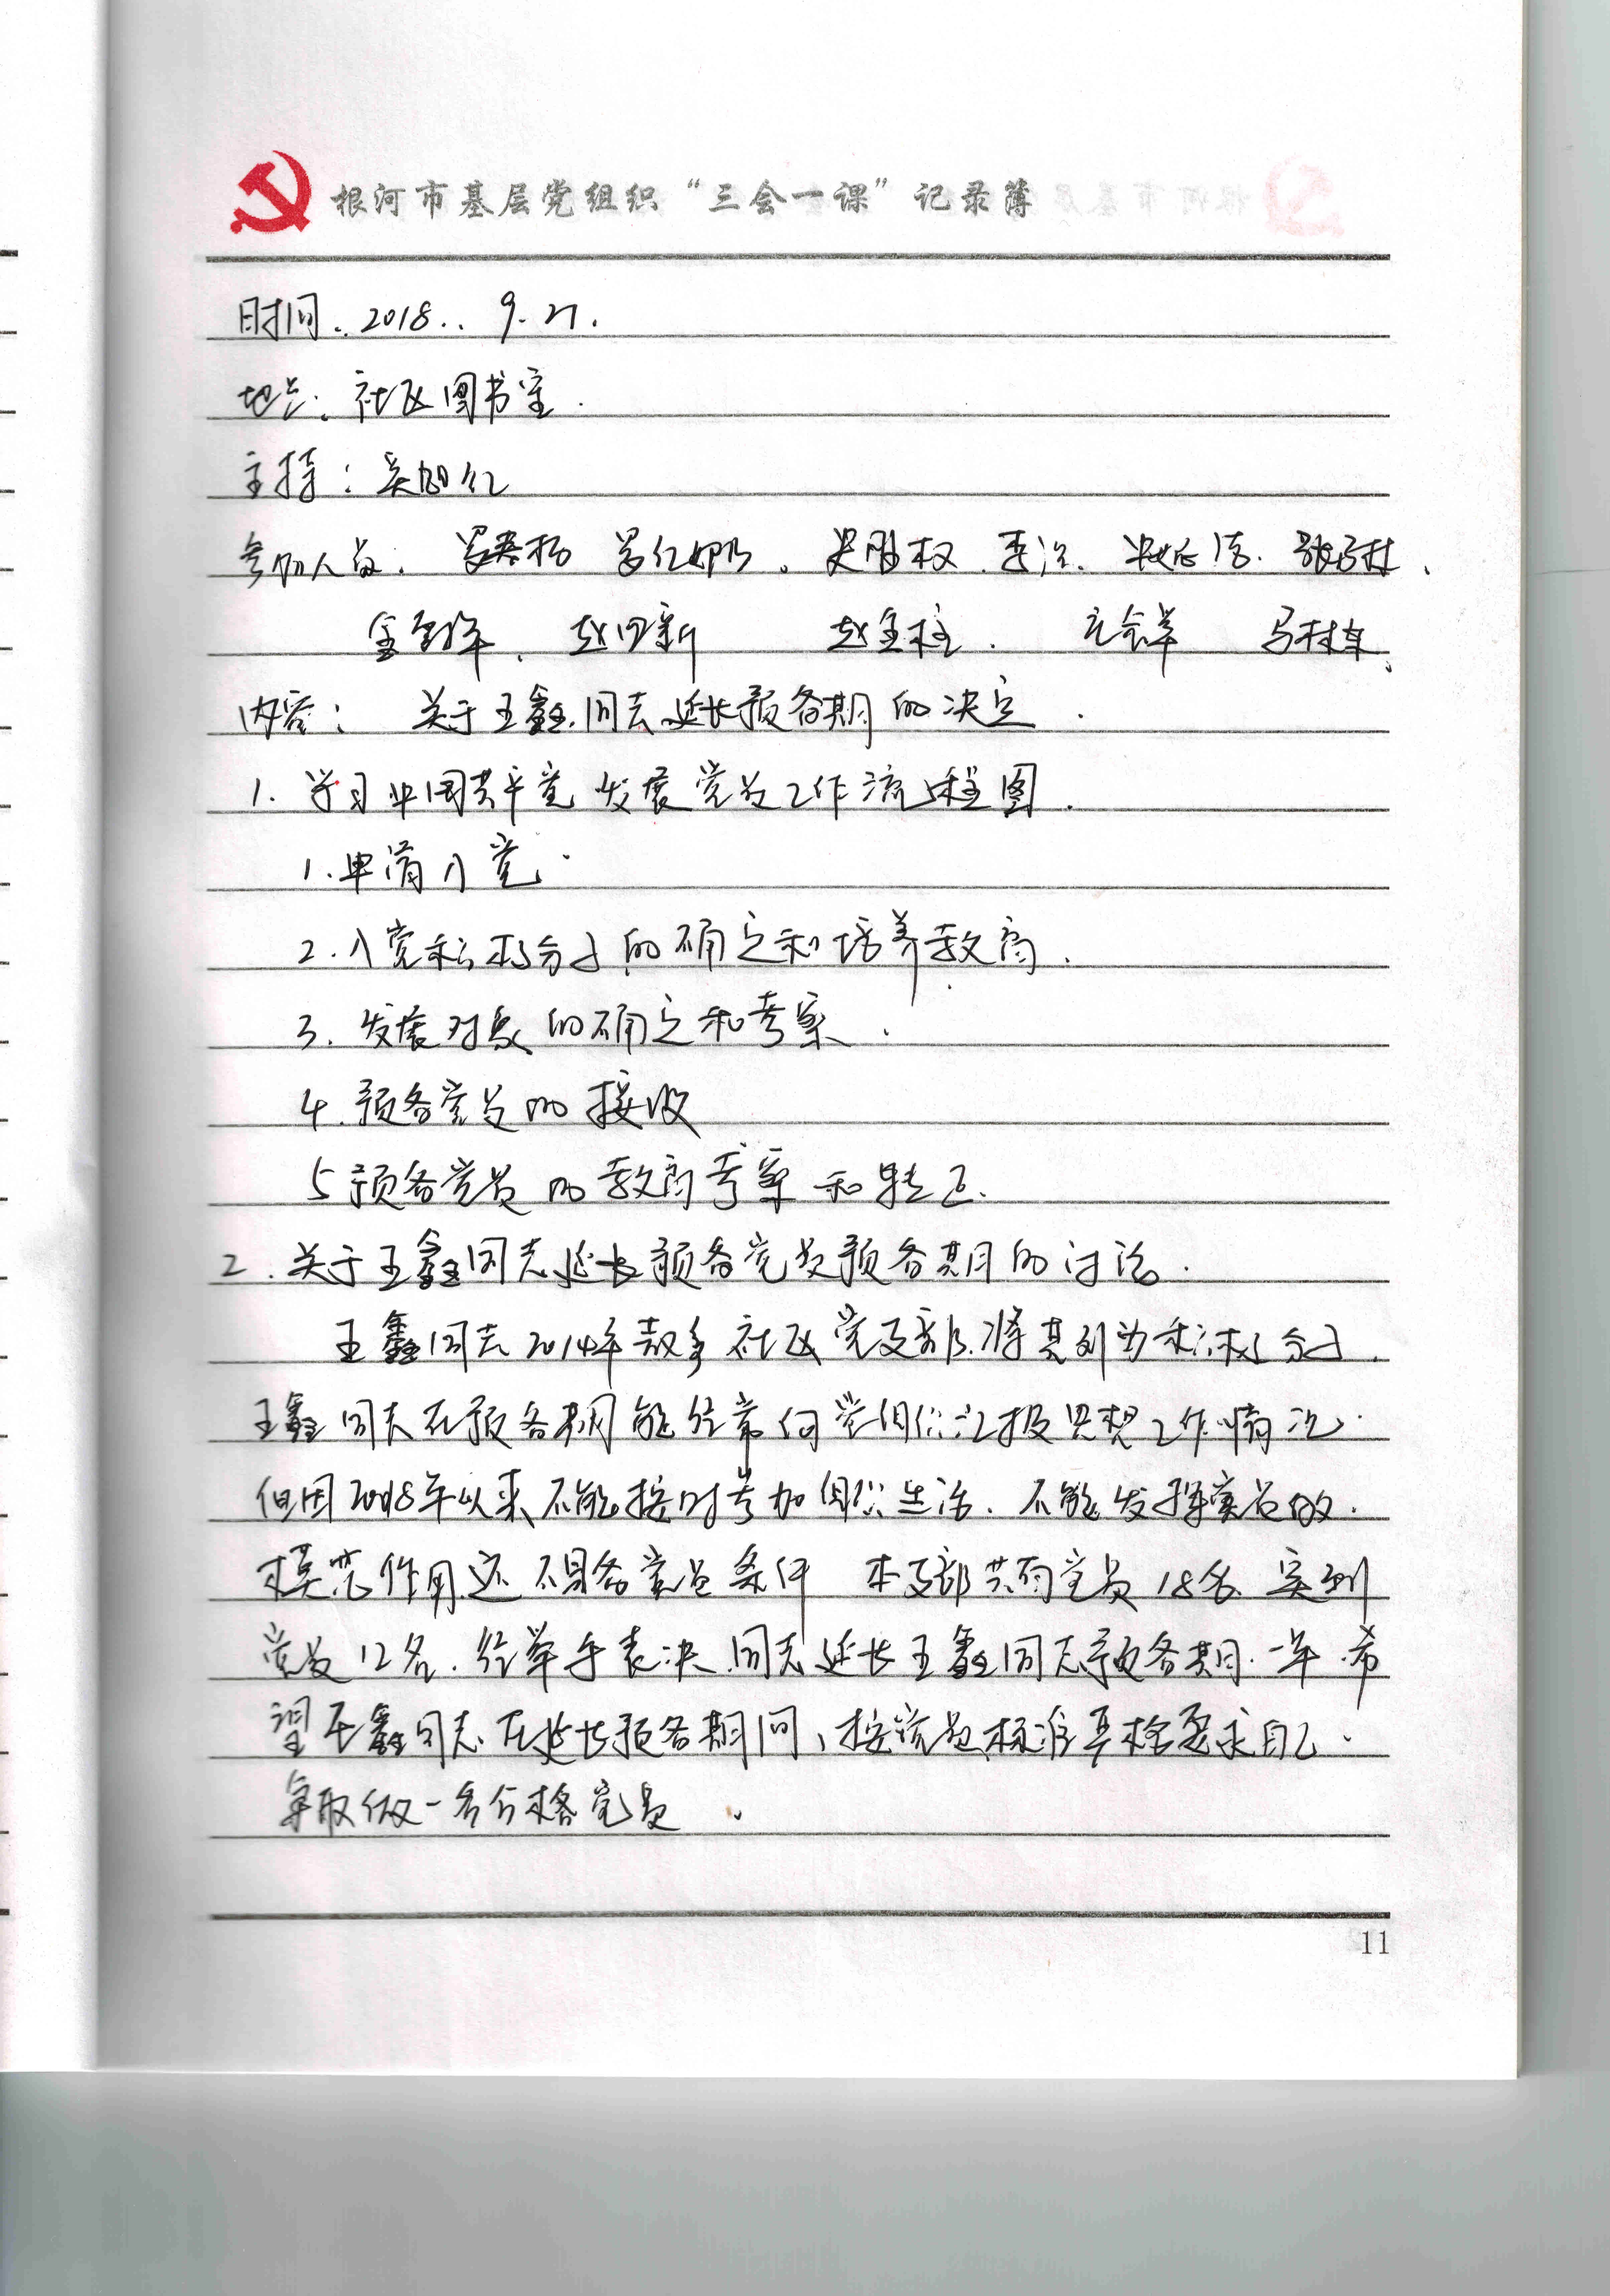 根河市基层党组织“三会一课”记录簿
时间: 2018. 9. 21.
地点: 社区图书室.
主持: 吴旭红
参加人员: 李治.
赵日新 赵金柱.
内容: 关于王鑫同志延长预备期的决定.
1. 学习中国共产党发展党员工作流程图.
1. 申请入党.
2. 入党积极分子的确定和培养教育.
3. 发展对象的确定和考察.
4. 预备党员的接收
5 预备党员的教育考察和转正.
2. 关于王鑫同志延长预备党员预备期的讨论.
王鑫同志2014年 社区党支部将其列为积极分子.
王鑫同志在预备期能经常向党组织汇报思想工作情况.
但因2018年以来不能按时参加组织生活. 不能发挥党员的.
模范作用还不具备党员条件 本支部共有党员18名 实到
党员12名. 经举手表决 同志延长王鑫同志预备期一年.希
望王鑫同志在延长预备期间、按党员标准严格要求自己.
争取做一名合格党员.
11